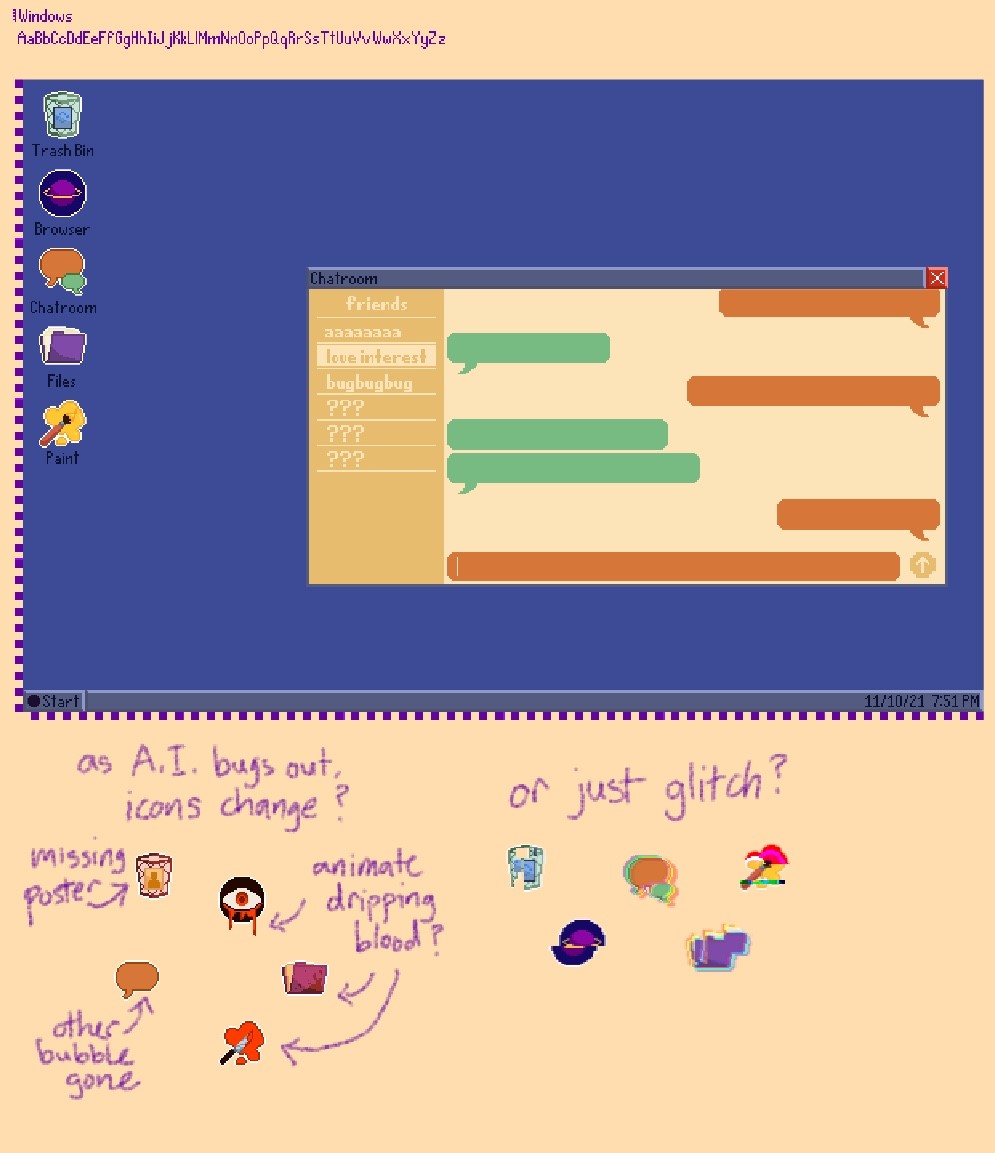 !Windows
AaBbCcDdEeFfGgHhIiJjKkLlMmNnOoPpQqRrSsTtUuVvWwXxYyZz
Trash Bin
Browser
Chatroom
Files
Paint
Chatroom
friends
aaaaaaaa
love interest
bugbugbug
???
???
???
Start
11/10/21 7:51 PM
as A.I. bugs out,
icons change?
missing
poster
animate
dripping
blood?
other
bubble
gone
or just glitch?